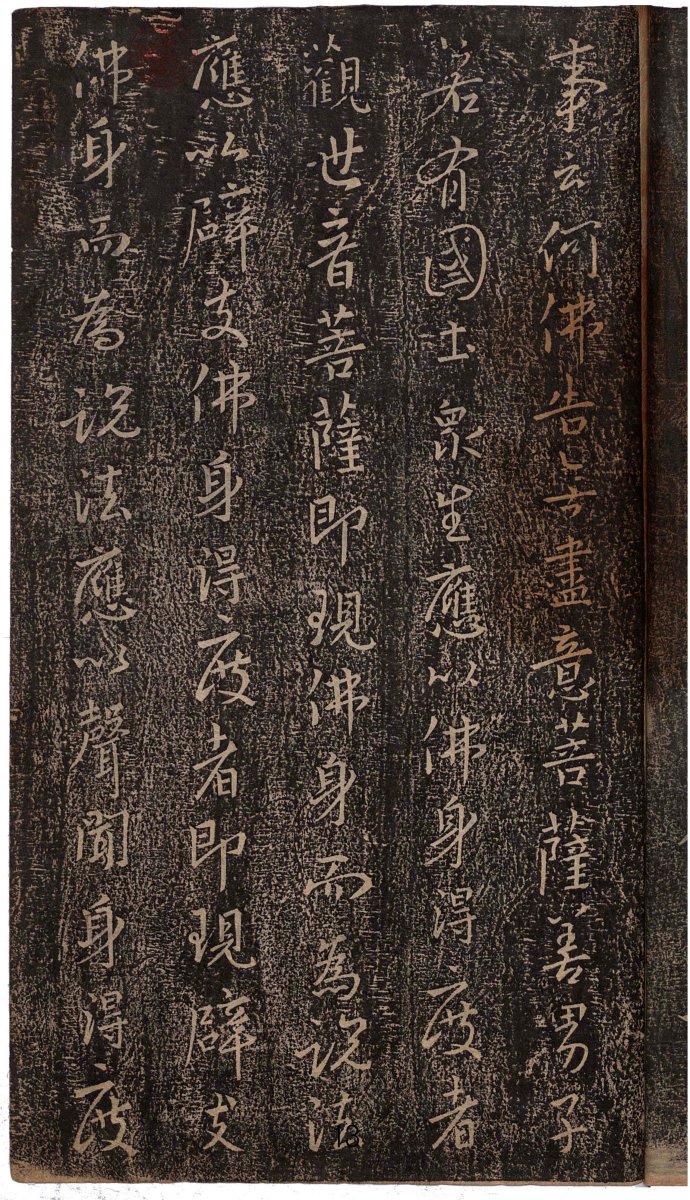 事云何佛告无盡意菩薩善男子
若有國土眾生應以佛身得度者
觀世音菩薩即現佛身而為說法
應以辟支佛身得度者即現辟支
佛身而為說法應以聲聞身得度
13